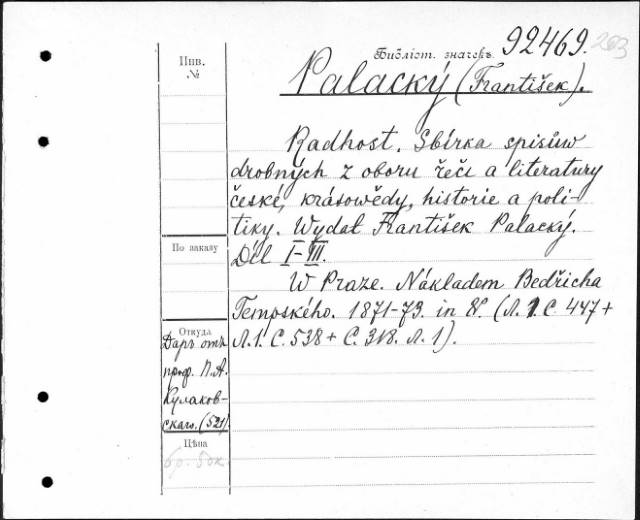 Библіот. значекъ 92469.
Инв.
№
Palacký (František).
Radhost. Sbírka spisůw
drobných z oboru řeči a literatury
české, krásowědy, historie a poli-
tiky. Wydal František Palacký.
Díl I-III.
W Praze. Nákladem Bedřicha
Tempského. 1871-73. in 8°. (Л. 1. С. 447 +
Л. 1. С. 538 + С. 318. Л. 1).
По заказу
Откуда
Даръ отъ
проф. П. А.
Кулаков-
скаго. (521).
Цѣна